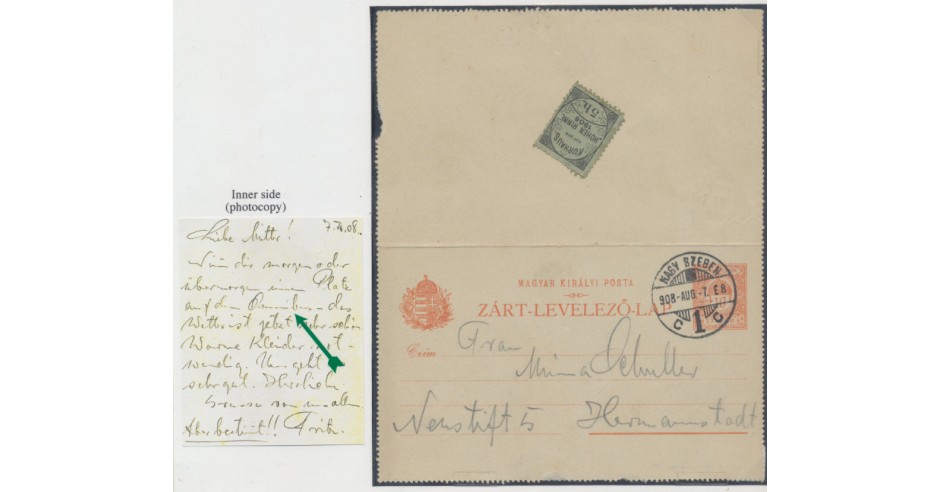 Inner side
(photocopy)
7. 08.
Liebe Mitter!
Nimm dir morgen oder
übermorgen einen Platz
auf dem Omnibus - das
Wetter ist jetzt sehr schön
Warme Kleider not-
wendig. Uns geht es
sehr gut. Herzliche
Grüsse von uns allen
Aber bestimmt!! Fritz.
5 h.
"HOHEN RINNE"
1906
KURHAUS
NAGY SZEBEN
908-AUG.-7. E8
C 1 C
MAGYAR KIRÁLYI POSTA
ZÁRT-LEVELEZŐ-LAP
Czim
Frau
Minna Schuller
Neustift 5 Hermannstadt